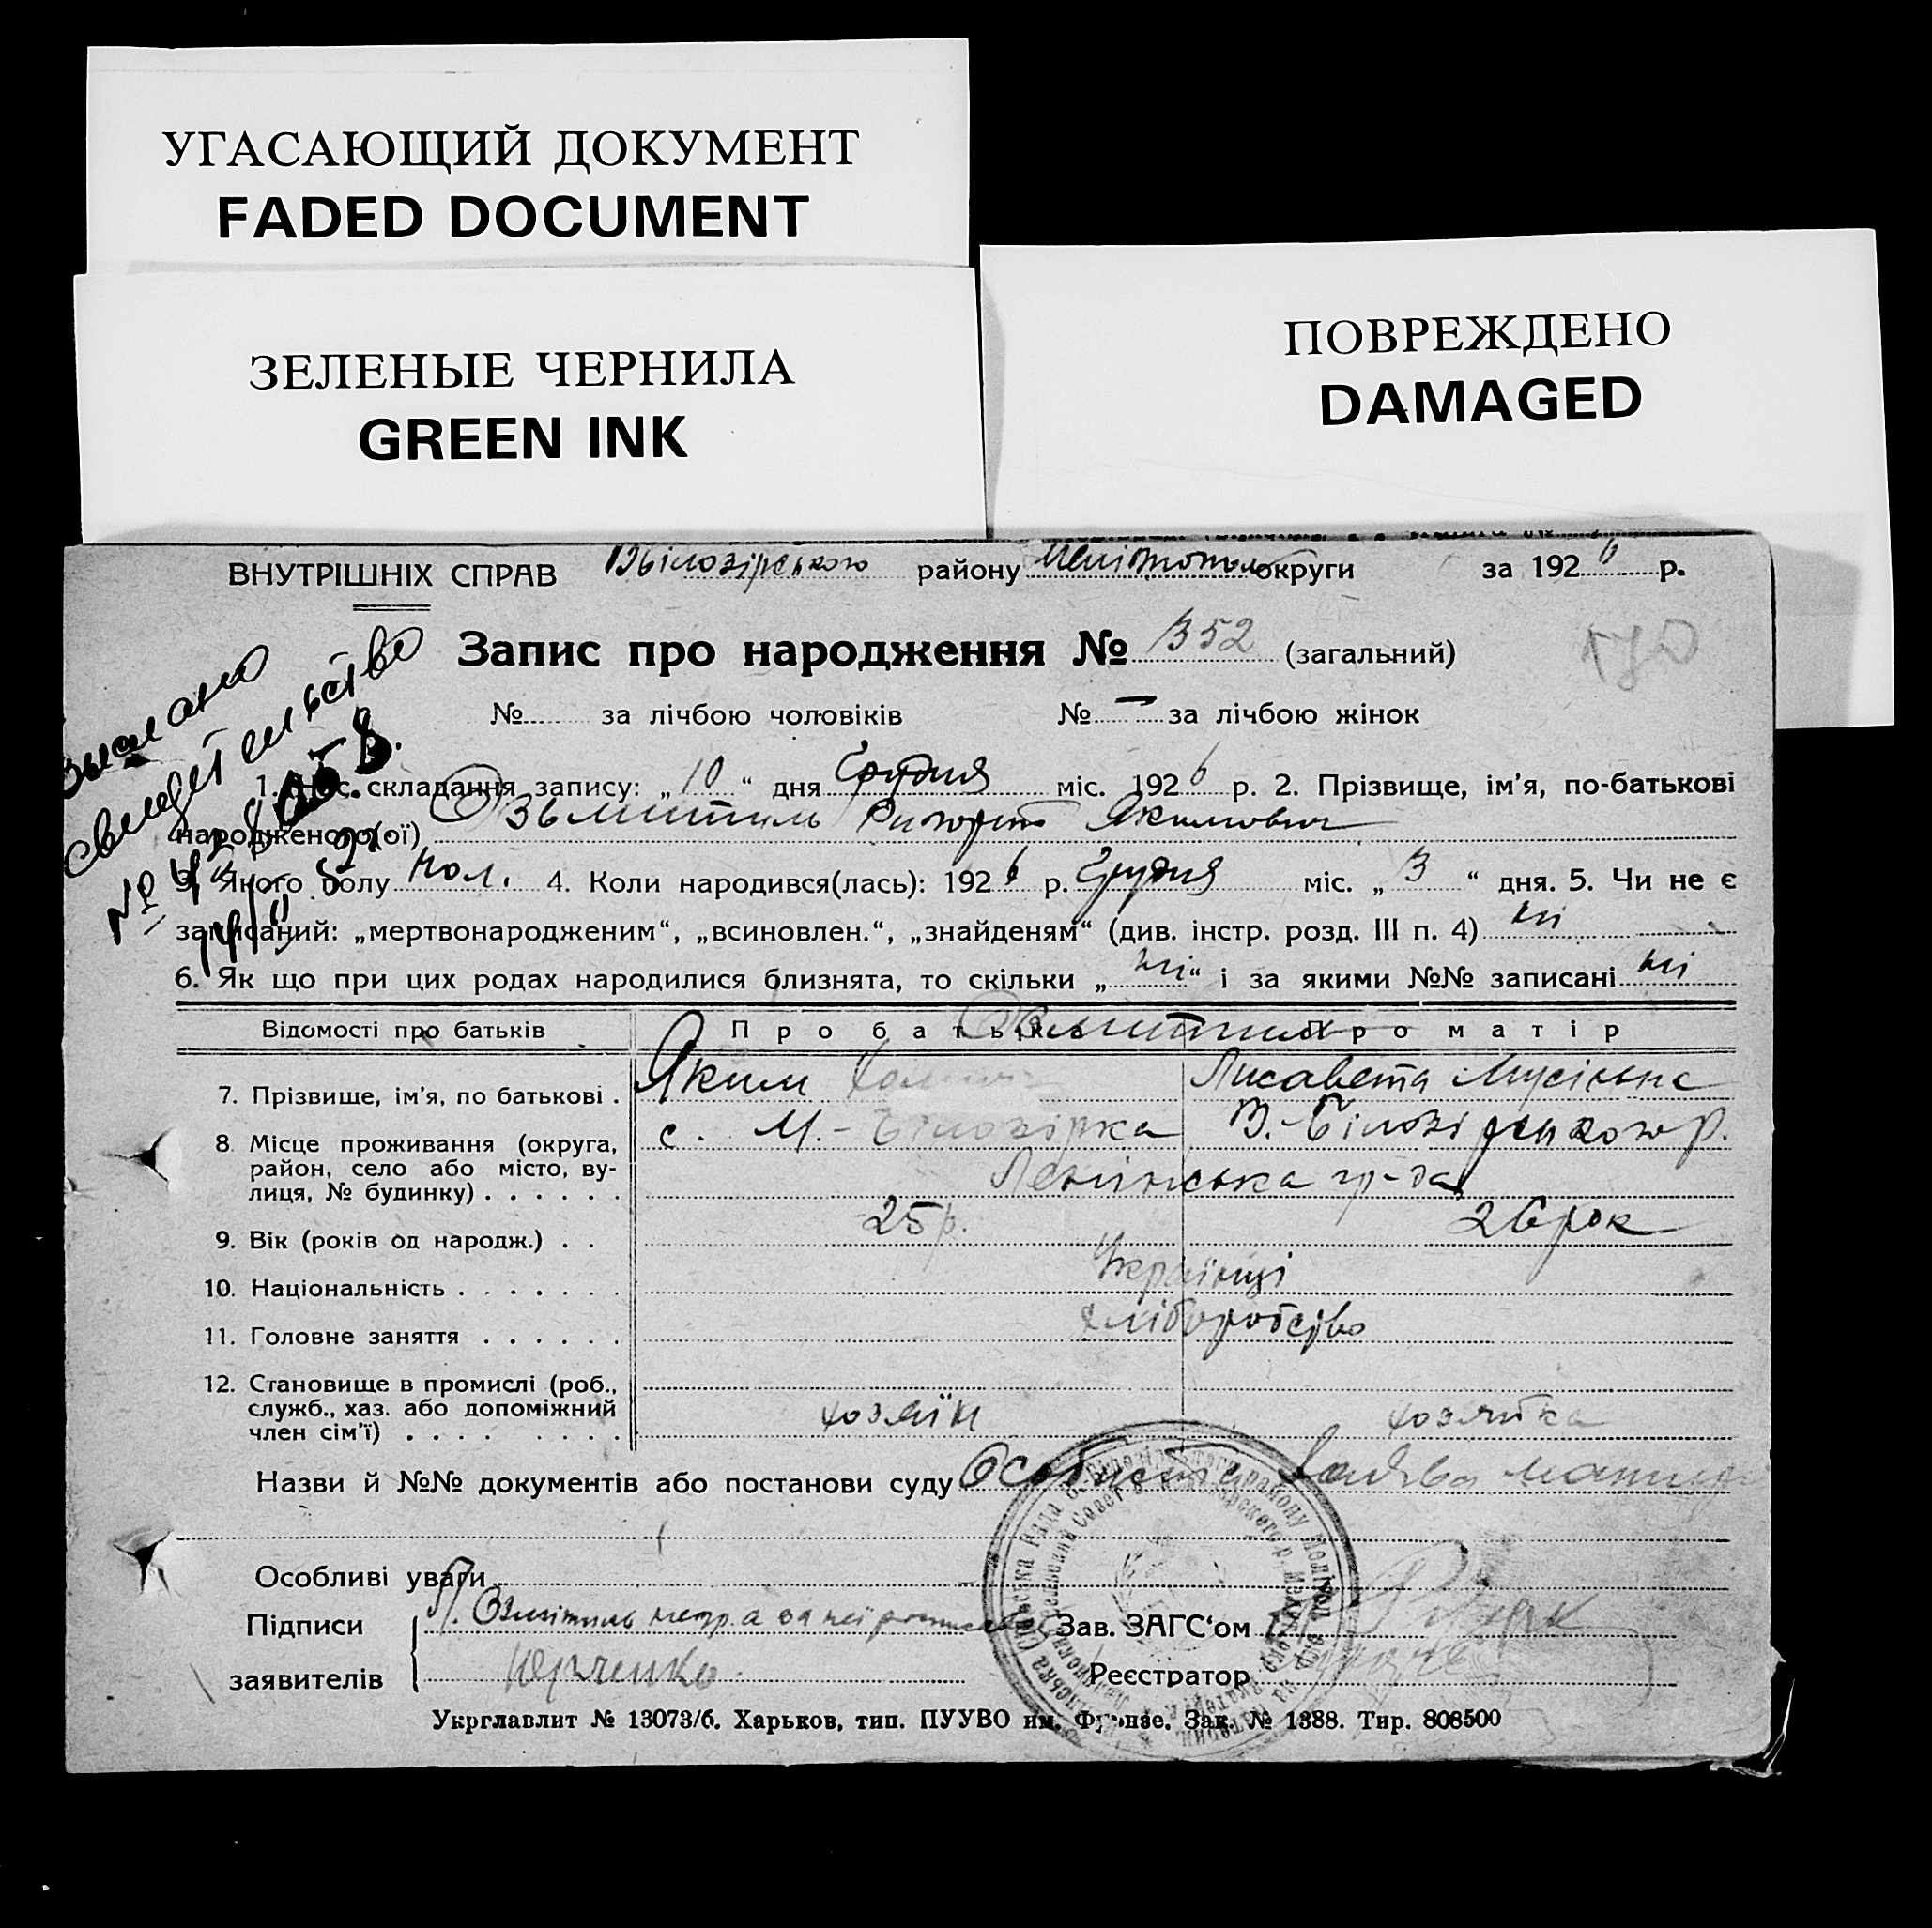 УГАСАЮЩИЙ ДОКУМЕНТ
FADED DOCUMENT
ЗЕЛЕНЫЕ ЧЕРНИЛА
GREEN INK
ПОВРЕЖДЕНО
DAMAGED
ВНУТРІШНІХ СПРАВ В Білозірського району Мелітополь округи за 1926 р.
Запис про народження № 352 (загальний)
№ за лічбою чоловіків № — за лічбою жінок
свидетельство
1. складання запису: „10“ дня Грудня міс. 1926 р. 2. Прізвище, ім'я, по-батькові
народженого(ої) Якимович
3. Якого полу чол. 4. Коли народився(лась): 1926 р. Грудня міс. „3“ дня. 5. Чи не є
записаний: „мертвонародженим“, „всиновлен.“, „знайденям“ (див. інстр. розд. III п. 4) ні
6. Як що при цих родах народилися близнята, то скільки „ні“ і за якими №№ записані ні
Відомості про батьків Про батька Про матір
7. Прізвище, ім'я, по батькові . Яким Лисавета Мусіївна
8 Місце проживання (округа, с. М.-Білозірка В.-Білозірського р.
район, село або місто, ву-
лиця, № будинку) . . . . . . Ленінська
9. Вік (років од народж.) . . 25 р. 26 рок
10. Національність . . . . . . . Українці
11. Головне заняття . . . . . . хліборобство
12. Становище в промислі (роб.,
служб., хаз. або допоміжний хозяїн хозяйка
член сім'ї) . . . . . . . .
Назви й №№ документів або постанови суду Особиста заява
Особливі уваги
Підписи Зав. ЗАГС'ом
заявителів Юрченко Реєстратор
Укрглавлит № 13073/6. Харьков, тип. ПУУВО им. Фрунзе. Зак. № 1388. Тир. 808500